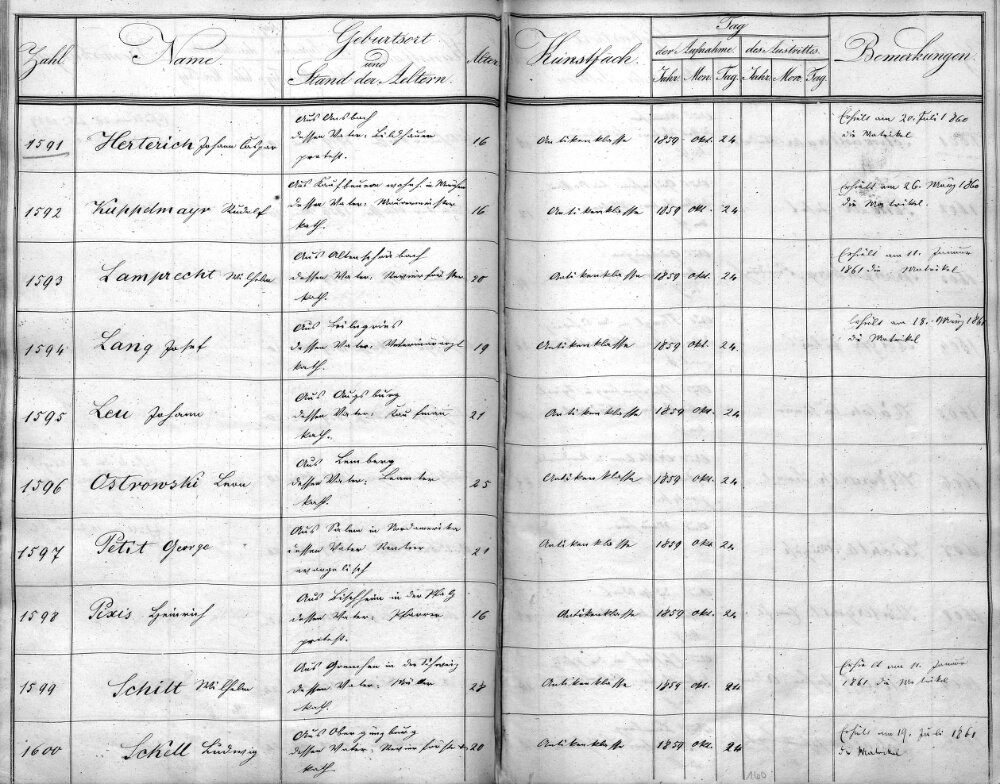 Zahl Name Geburtsort und Stand der Aeltern. Alter Kunstfach. Tag der Aufnahme. des Austrittes. Bemerkungen.
Jahr. Mon. Tag. Jahr. Mon. Tag.
Aus Ansbach
1591 Herterich Johann Caspar dessen Vater: Bildhauer 16 Antikenklasse 1859 Okt. 24 Erhält am 20. Juli 1860
protest. die Matrikel
Aus Kaufbeuren wohnh. in
1592 Kuppelmayr Rudolf dessen Vater: Maurermeister 16 Antikenklasse 1859 Okt. 24. Erhielt am 26. März 1860
kath. die Matrikel.
Aus
1593 Lamprecht Wilhelm dessen Vater: Revierförster 20 Antikenklasse 1859 Okt. 24 Erhält am 11. Januar
kath. 1861 die Matrikel
Aus Beilngries
1594 Lang Josef dessen Vater: Veterinärarzt 19 Antikenklasse 1859 Okt. 24. Erhält am 18. März 1861
kath. die Matrikel
Aus Augsburg
1595 Leu Johann dessen Vater: Kaufmann 21 Antikenklasse 1859 Okt. 24
kath.
Aus Lemberg
1596 Ostrowski Leon dessen Vater: Beamter 25 Antikenklasse 1859 Okt. 24
kath.
Aus Salem in Nordamerika
1597 Petit George dessen Vater Rentier 21 Antikenklasse 1859 Okt. 24
evangelisch
Aus Bischheim in der Pfalz
1598 Pixis Heinrich dessen Vater: Pfarrer 16 Antikenklasse 1859 Okt. 24
protest.
Aus Grenchen in der Schweiz
1599 Schilt Wilhelm dessen Vater: 28 Antikenklasse 1859 Okt. 24 Erhält am 11. Januar
kath. 1861 die Matrikel
Aus Obergünzburg
1600 Schell Ludwig dessen Vater: Revierförster 20 Antikenklasse 1859 Okt. 24 Erhält am 19. Juli 1861
kath. die Matrikel.
160